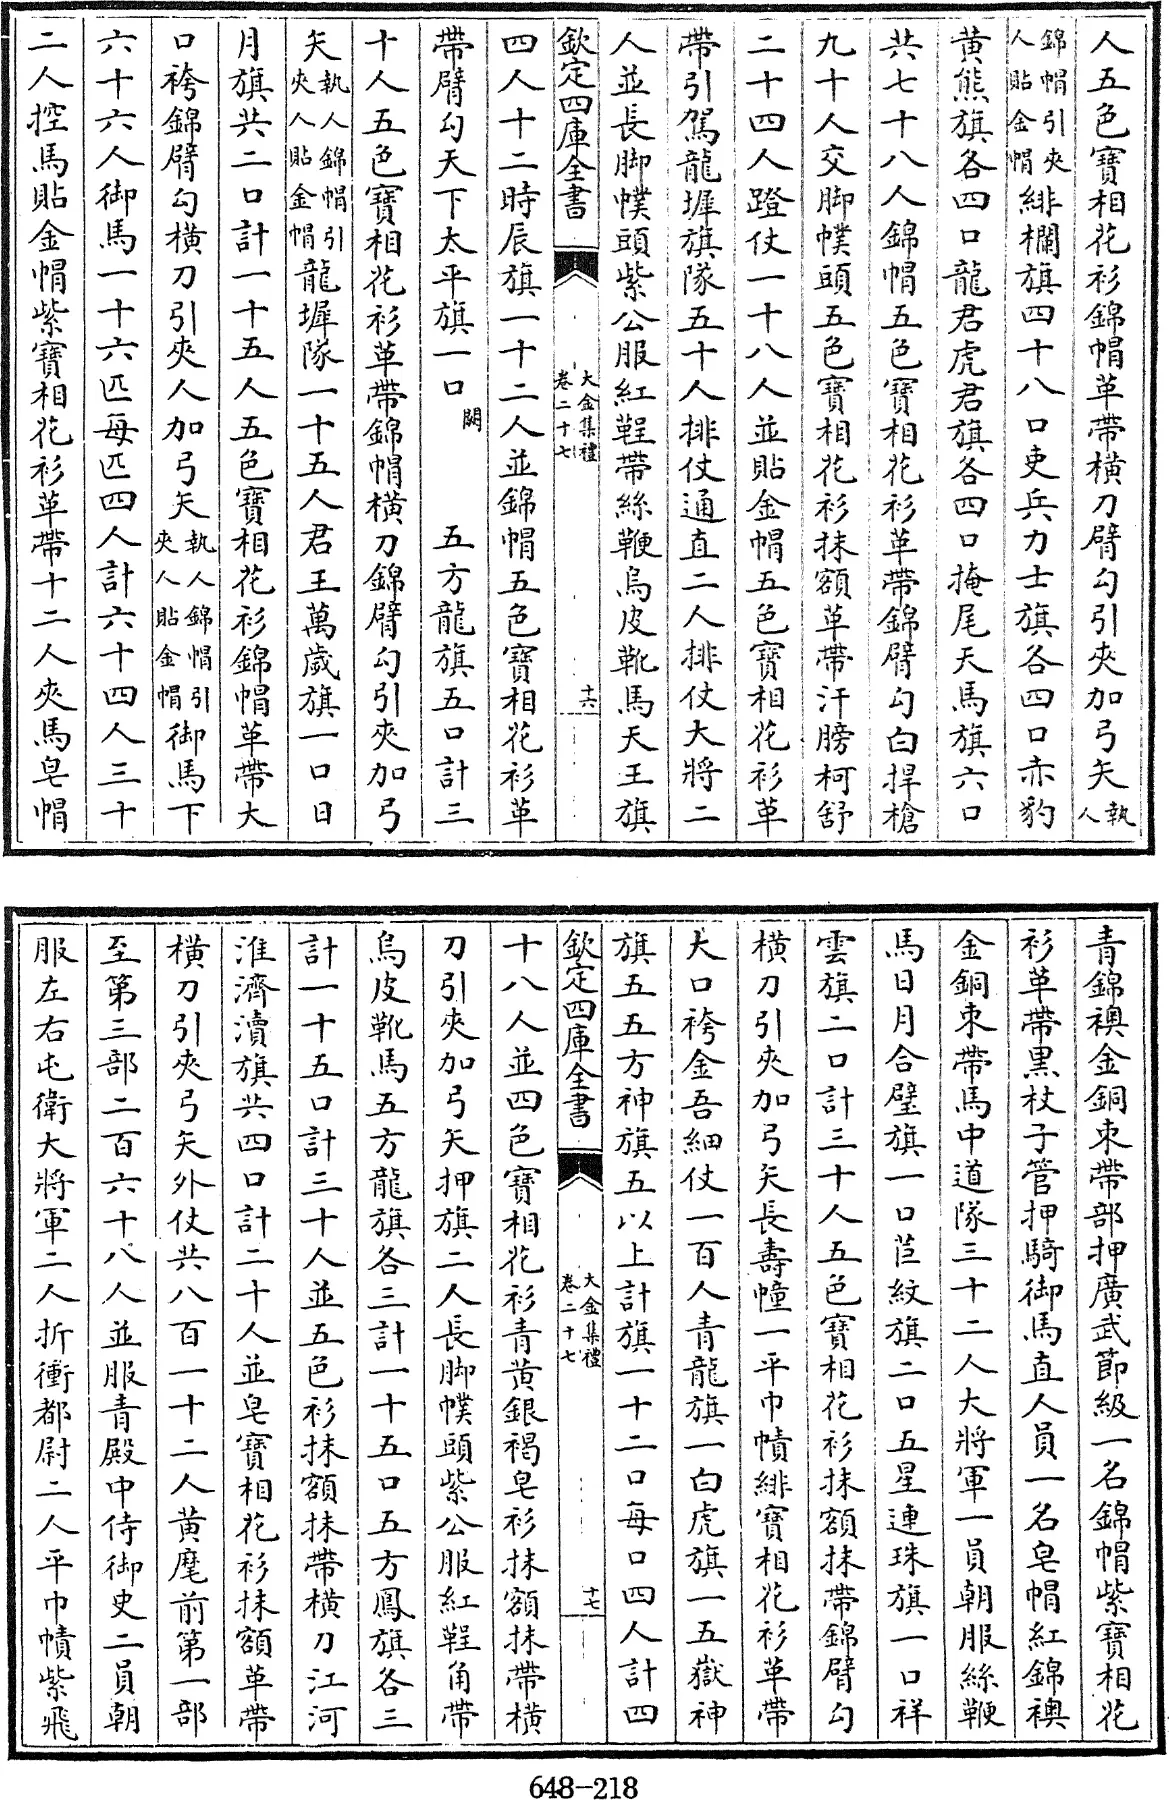 人五色寶相花衫錦帽革帶橫刀臂勾引夾加弓矢執人
錦帽引夾人貼金帽緋櫩旗四十八口吏兵力士旗各四口赤豹
黃熊旗各四口龍君虎君旗各四口掩尾天馬旗六口
共七十八人錦帽五色寶相花衫革帶錦臂勾白捍槍
九十人交脚幞頭五色寶相花衫抹額革帶汗膀柯舒
二十四人蹬仗一十八人並貼金帽五色寶相花衫革
帶引駕龍墀旗隊五十人排仗通直二人排仗大將二
人並長脚幞頭紫公服紅鞓帶絲鞭烏皮靴馬天王旗
欽定四庫全書 大金集禮 卷二十七 十六
四人十二時辰旗一十二人並錦帽五色寶相花衫革
帶臂勾天下太平旗一口闕 五方龍旗五口計三
十人五色寶相花衫革帶錦帽橫刀錦臂勾引夾加弓
矢執人錦帽引夾人貼金帽龍墀隊一十五人君王萬歲旗一口日
月旗共二口計一十五人五色寶相花衫錦帽革帶大
口袴錦臂勾橫刀引夾人加弓矢執人錦帽引夾人貼金帽御馬下
六十六人御馬一十六匹每匹四人計六十四人三十
二人控馬貼金帽紫寶相花衫革帶十二人夾馬皂帽
青錦襖金銅束帶部押廣武節級一名錦帽紫寶相花
衫革帶黑杖子管押騎御馬直人員一名皂帽紅錦襖
金銅束帶馬中道隊三十二人大將軍一員朝服絲鞭
馬日月合璧旗一口苣紋旗二口五星連珠旗一口祥
雲旗二口計三十人五色寶相花衫抹額抹帶錦臂勾
橫刀引夾加弓矢長壽幢一平巾幘緋寶相花衫革帶
大口袴金吾細仗一百人青龍旗一白虎旗一五嶽神
旗五五方神旗五以上計旗一十二口每口四人計四
欽定四庫全書 大金集禮 卷二十七 十七
十八人並四色寶相花衫青黃銀褐皂衫抹額抹帶橫
刀引夾加弓矢押旗二人長脚幞頭紫公服紅鞓角帶
烏皮靴馬五方龍旗各三計一十五口五方鳳旗各三
計一十五口計三十人並五色衫抹額抹帶橫刀江河
淮濟瀆旗共四口計二十人並皂寶相花衫抹額革帶
橫刀引夾弓矢外仗共八百一十二人黃麾前第一部
至第三部二百六十八人並服青殿中侍御史二員朝
服左右屯衛大將軍二人折衝都尉二人平巾幘紫飛
648-218